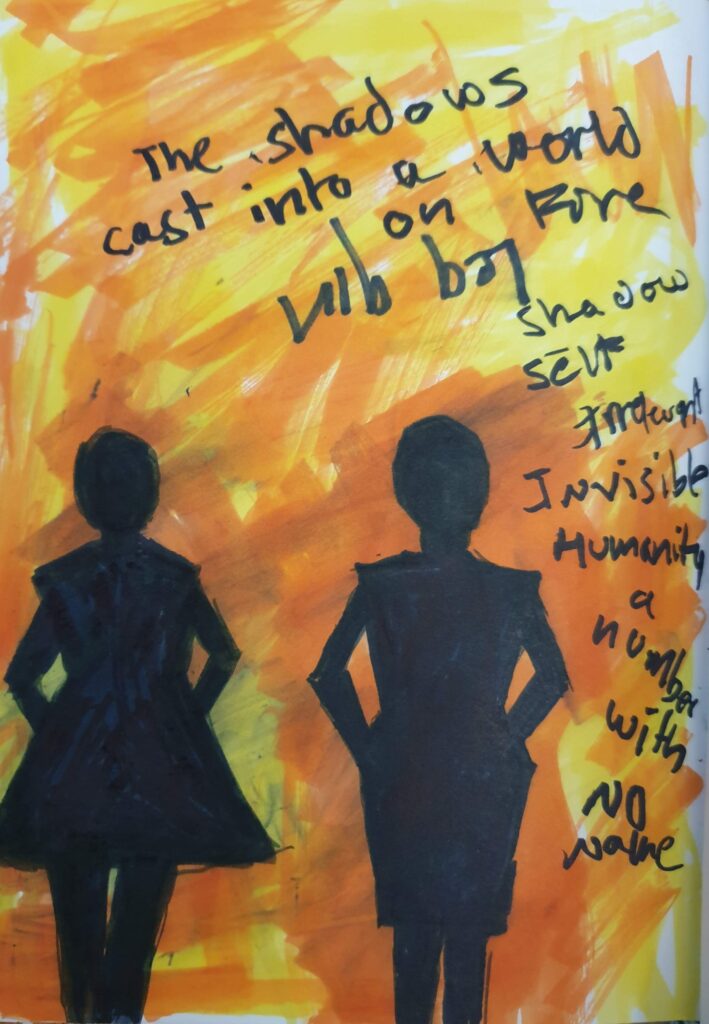 The shadows
cast into a world
on Fire
Shadow
Self
Irrelevant
Invisible
Humanity
a
number
with
NO
Name